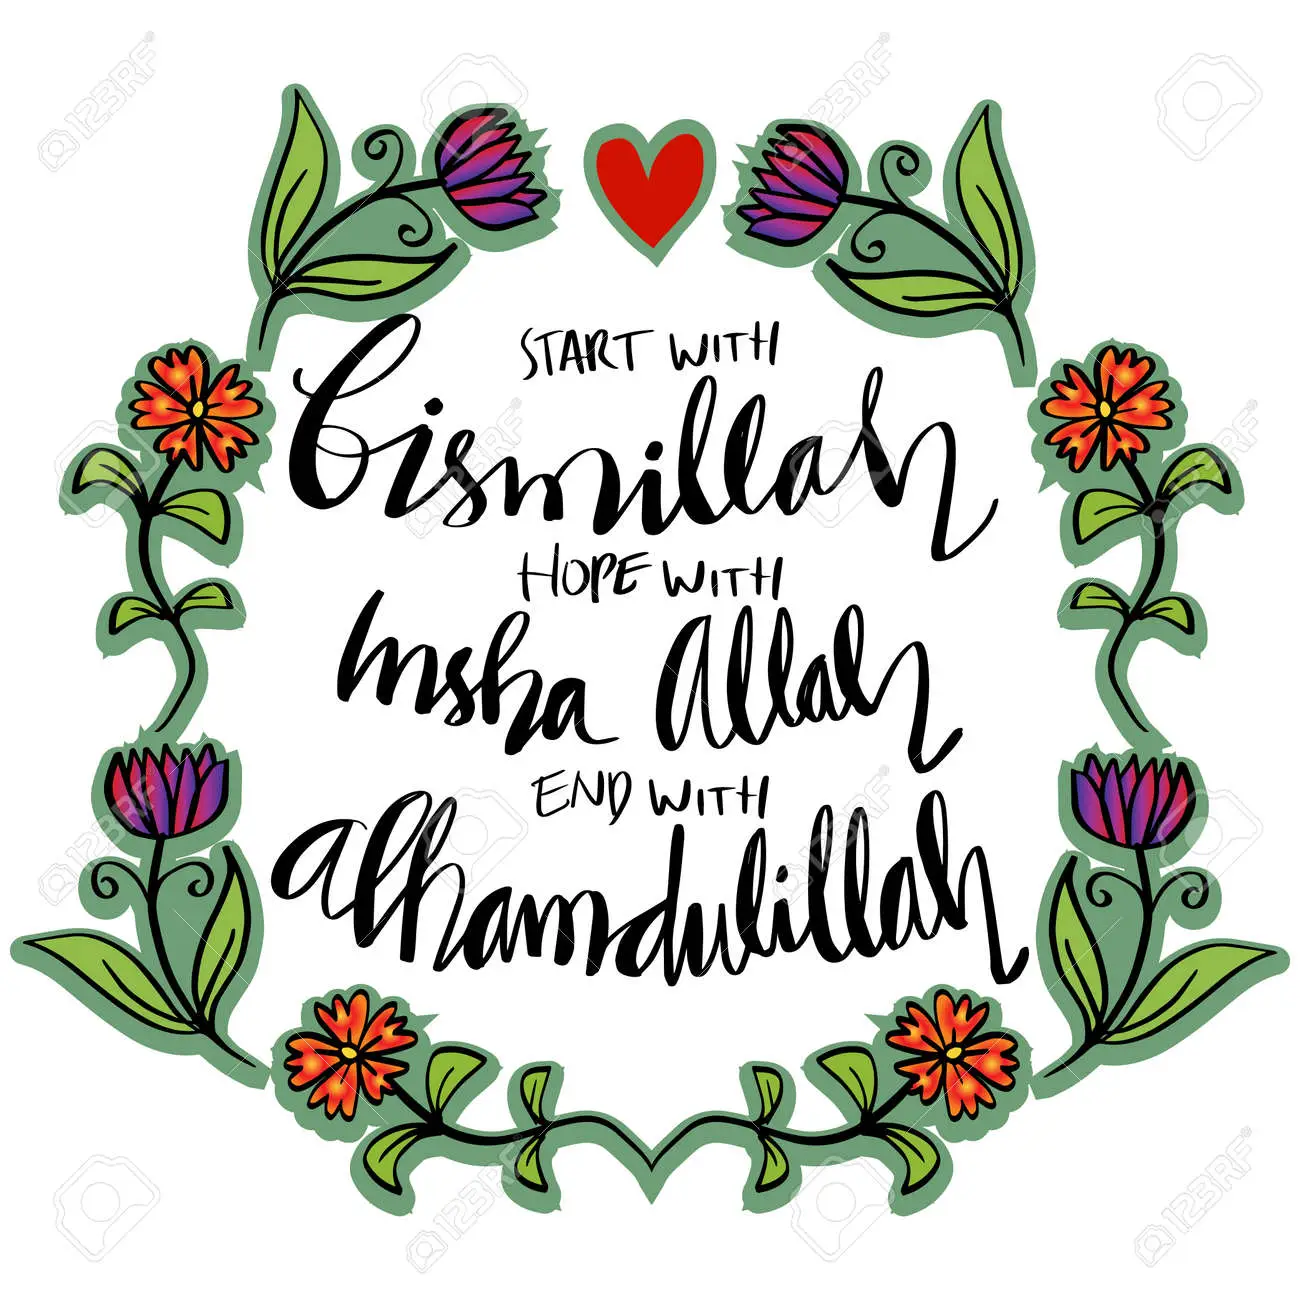 START WITH
Bismillah
HOPE WITH
Insha Allah
END WITH
Alhamdulillah
123RF